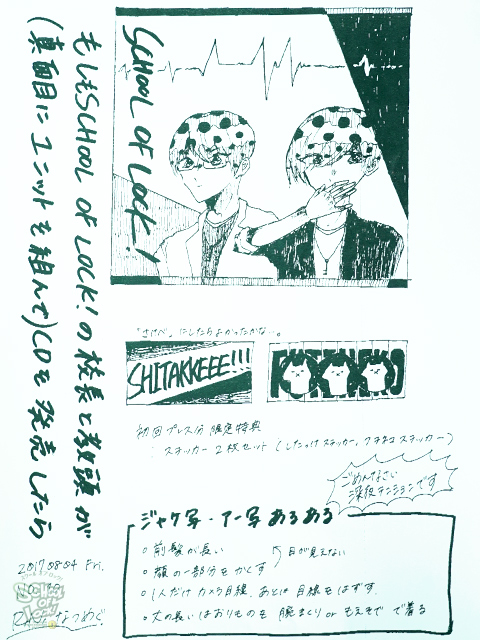 もしもSCHOOL OF LOCK!の校長と教頭が
(真面目にユニットを組んで)CDを発売したら
SCHOOL OF LOCK!
「さけべ」にしたらよかったかな…。
SHITAKKEEE!!!
初回プレス分 限定特典
:ステッカー2枚セット(したっけステッカー、クチネコステッカー)
ごめんなさい
深夜テンションです
ジャケ写・アー写 あるある
前髪が長い
目が見えない
顔の一部分をかくす
1人だけカメラ目線、あとは目線をはずす。
丈の長いはおりものを 腕まくり or もえそで で着る
2017.08.04 Fri.
なつめぐ